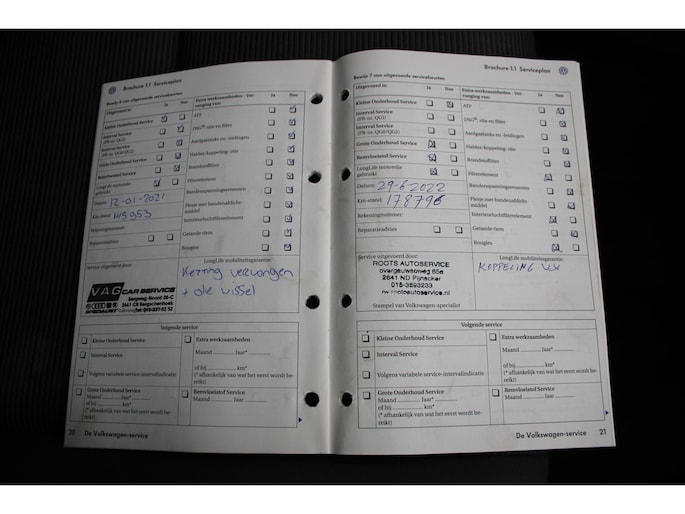 Brochure 1.1 Serviceplan
Bewijs 6 van uitgevoerde servicebeurten
Uitgevoerd in:
Ja
Nee
Extra werkzaamheden - Ver-
vanging van:
Ja
Nee
Kleine Onderhoud Service
ATF
Interval Service
(PR-nr. QG1)
DSG®-olie en filter
Interval Service
(PR-nr. QG0/QG2)
Aardgastanks en -leidingen
Grote Onderhoud Service
Haldex-koppeling: olie
Remvloeistof Service
Brandstoffilter
LongLife motorolie
gebruikt
Filterelement
Datum: 12-01-2021
Bandenspanningssensoren
Km-stand:
Flesje met bandenafdicht-
middel
Rekeningnummer:
Interieurluchtfilterelement
Reparatieadvies
Getande riem
Bougies
Service uitgevoerd door:
LongLife mobiliteitsgarantie:
VAG CAR SERVICE
Ketting vervangen
+ olie wissel
Volgende service
Kleine Onderhoud Service
Extra werkzaamheden
Interval Service
Maand ........... Jaar* ...........
of bij ........... km*
(* afhankelijk van wat het eerst wordt be-
reikt)
Volgens variabele service-intervalindicatie
Grote Onderhoud Service
Maand ........... Jaar* ...........
of bij ........... km*
(* afhankelijk van wat het eerst wordt be-
reikt)
Remvloeistof Service
Maand ........... Jaar ...........
20 De Volkswagen-service
Brochure 1.1 Serviceplan
Bewijs 7 van uitgevoerde servicebeurten
Uitgevoerd in:
Ja
Nee
Extra werkzaamheden - Ver-
vanging van:
Ja
Nee
Kleine Onderhoud Service
ATF
Interval Service
(PR-nr. QG1)
DSG®-olie en filter
Interval Service
(PR-nr. QG0/QG2)
Aardgastanks en -leidingen
Grote Onderhoud Service
Haldex-koppeling: olie
Remvloeistof Service
Brandstoffilter
LongLife motorolie
gebruikt
Filterelement
Datum: 29-6-2022
Bandenspanningssensoren
Km-stand: 178796
Flesje met bandenafdicht-
middel
Rekeningnummer:
Interieurluchtfilterelement
Reparatieadvies
Getande riem
Bougies
Service uitgevoerd door:
LongLife mobiliteitsgarantie:
ROOTS AUTOSERVICE
2641 ND Pijnacker
015-3693233
KOPPELING
Stempel van Volkswagen-specialist
Volgende service
Kleine Onderhoud Service
Extra werkzaamheden
Interval Service
Maand ........... Jaar* ...........
of bij ........... km*
(* afhankelijk van wat het eerst wordt be-
reikt)
Volgens variabele service-intervalindicatie
Grote Onderhoud Service
Maand ........... Jaar* ...........
of bij ........... km*
(* afhankelijk van wat het eerst wordt be-
reikt)
Remvloeistof Service
Maand ........... Jaar ...........
De Volkswagen-service 21